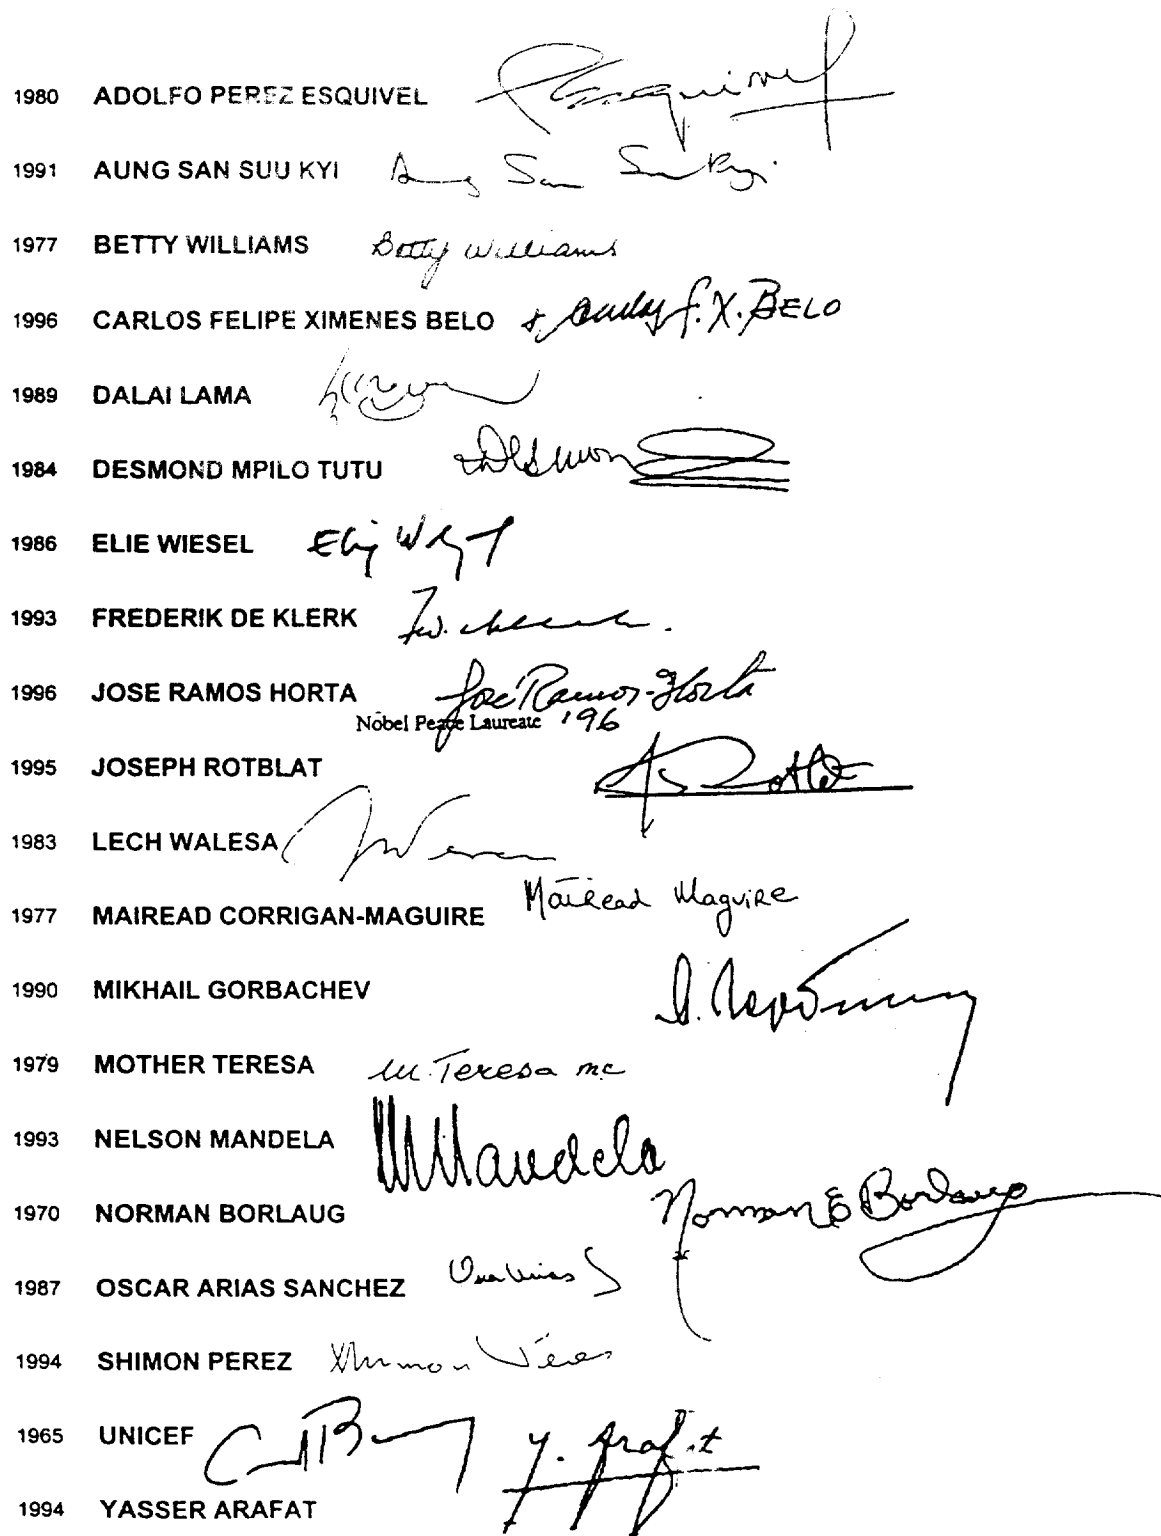 1980 ADOLFO PEREZ ESQUIVEL
1991 AUNG SAN SUU KYI Aung San Suu Kyi
1977 BETTY WILLIAMS Betty Williams
1996 CARLOS FELIPE XIMENES BELO F.X. BELO
1989 DALAI LAMA
1984 DESMOND MPILO TUTU Desmon
1986 ELIE WIESEL
1993 FREDERIK DE KLERK
1996 JOSE RAMOS HORTA José Ramos-Horta
Nobel Peace Laureate '96
1995 JOSEPH ROTBLAT
1983 LECH WALESA
1977 MAIREAD CORRIGAN-MAGUIRE Mairead Maguire
1990 MIKHAIL GORBACHEV
1979 MOTHER TERESA M. Teresa mc
1993 NELSON MANDELA Mandela
1970 NORMAN BORLAUG Norman E Borlaug
1987 OSCAR ARIAS SANCHEZ
1994 SHIMON PEREZ Shimon Peres
1965 UNICEF Y. Arafat
1994 YASSER ARAFAT